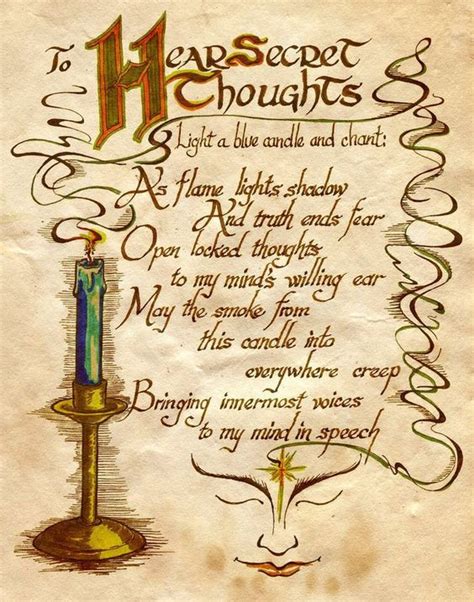 To Hear Secret
Thoughts
Light a blue candle and chant:
As flame lights shadow
And truth ends fear
Open locked thoughts
to my mind's willing ear
May the smoke from
this candle into
everywhere creep
Bringing innermost voices
to my mind in speech